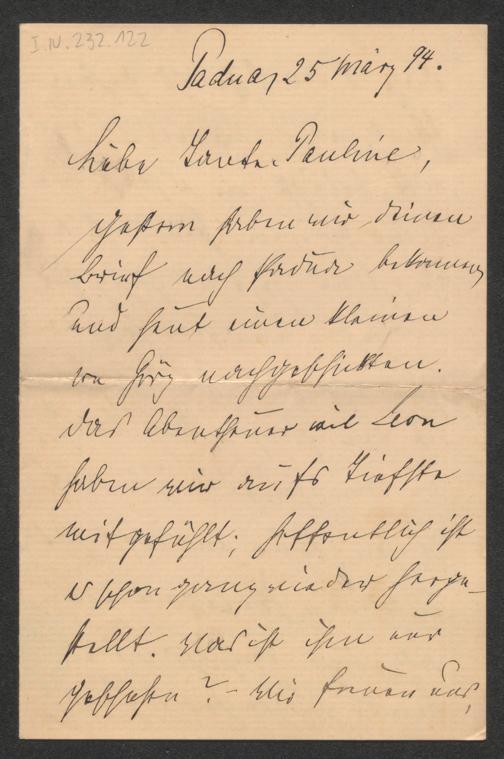 I.N. 232.122
Padua, 25 März 94.
Liebe Tante Pauline,
gestern haben wir deinen
Brief nach Padua bekommen,
und heut einen kleinen
von Görz nachgeschickten.
Das Abentheuer mit Leon
haben wir aufs Tiefste
mitgefühlt; hoffentlich ist
er schon ganz wieder herge-
stellt. Was ist ihm nur
geschehen? – Wir freuen uns,